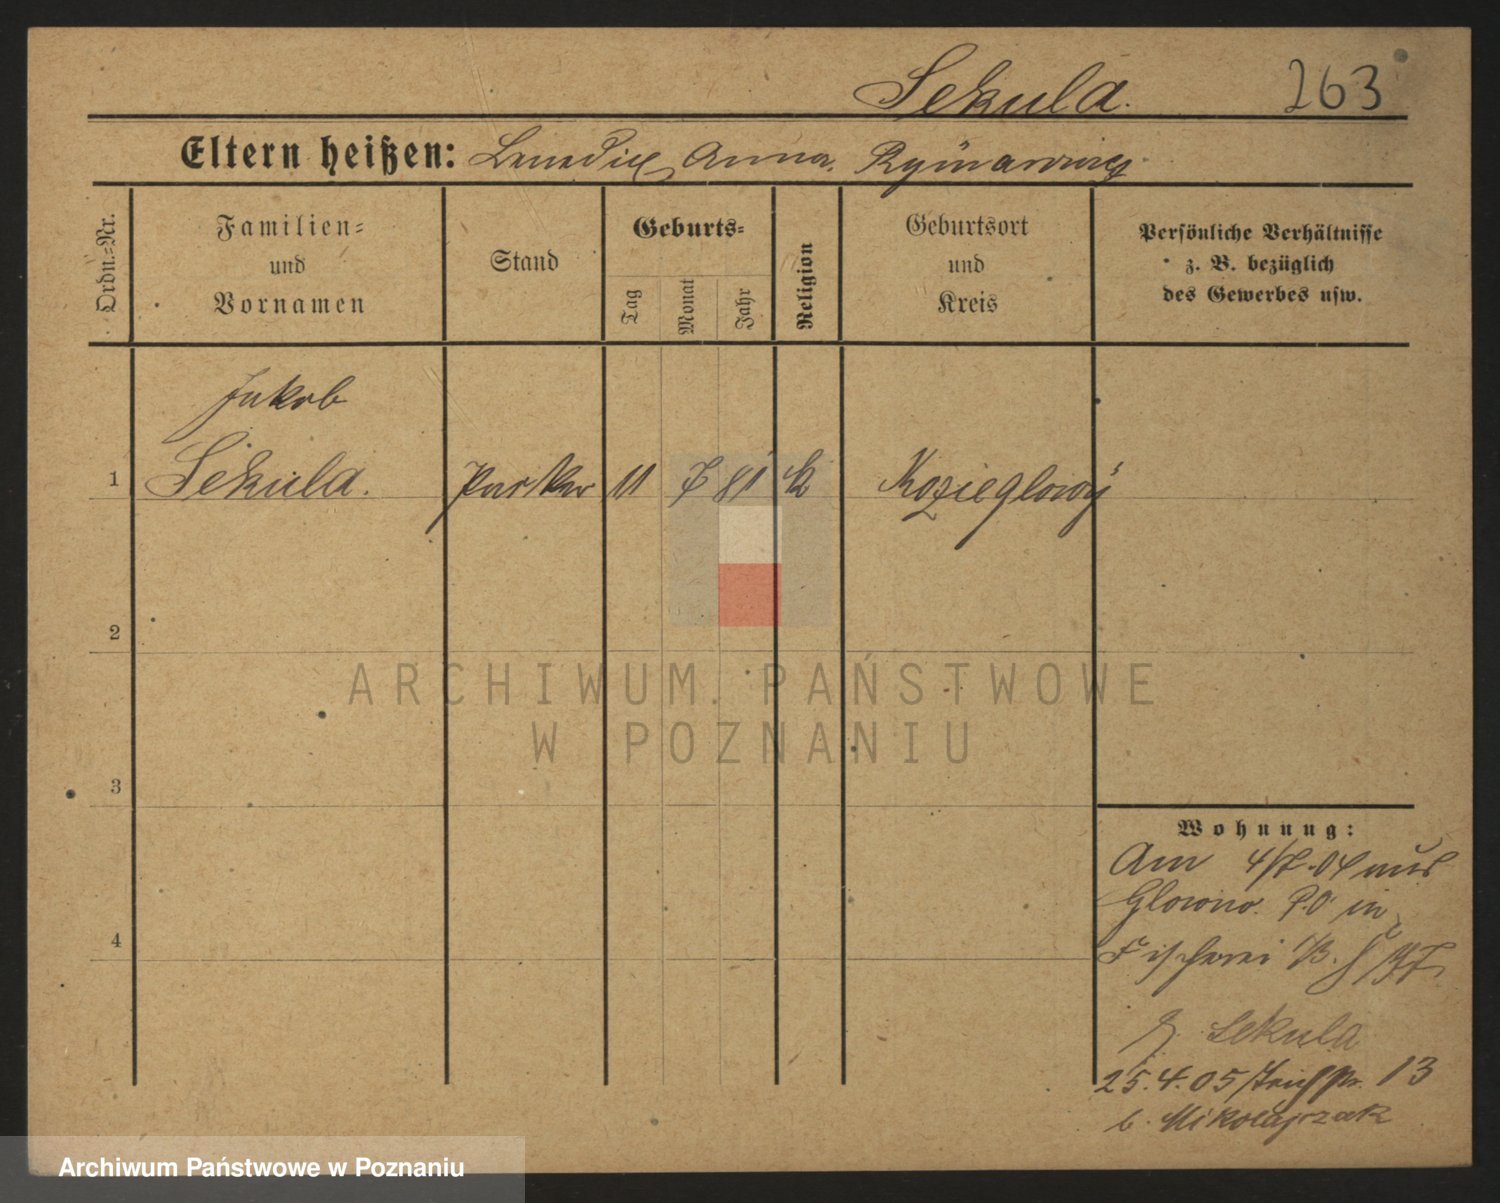 Sekula. 263
Eltern heißen: Benedict Anna
Ordn.-Nr.
Familien-
und
Vornamen
Stand
Geburts-
Tag
Monat
Jahr
Religion
Geburtsort
und
Kreis
Persönliche Verhältnisse
z. B. bezüglich
des Gewerbes usw.
Jakob
1 Sekula. 11 7 81 k Kozieglowÿ
2
3
4
Wohnung:
Am 4/7.04 aus
Glowno. P.O in
Fischerei
J. Sekula
25.4.05 13
b. Mikolajczak
ARCHIWUM PAŃSTWOWE
W POZNANIU
Archiwum Państwowe w Poznaniu